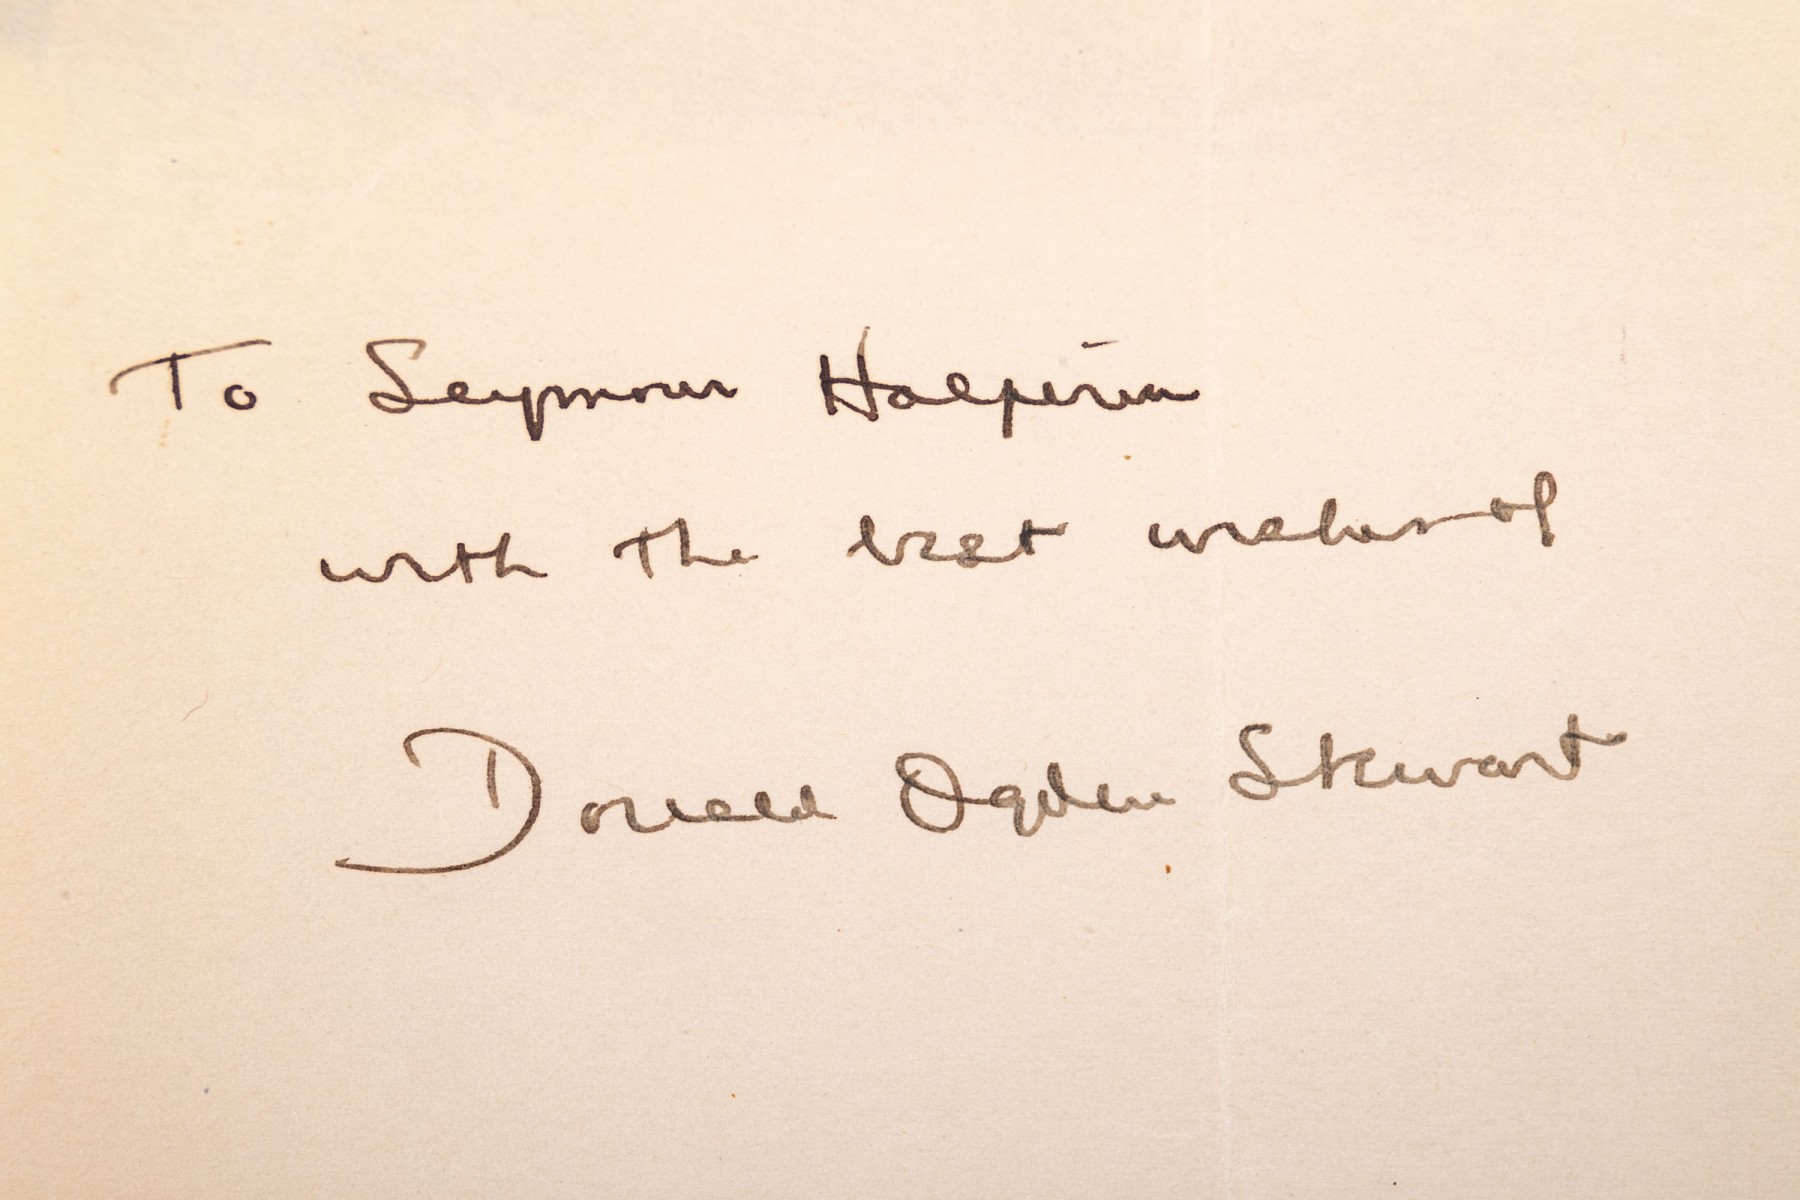 To Seymour Halperin
with the best wishes of
Donald Ogden Stewart